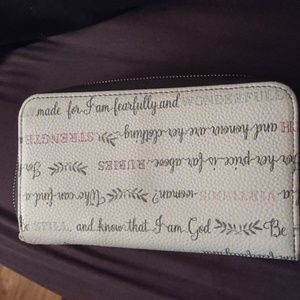 made for I am fearfully and WONDERFULLY
H and honour are her clothing. STRENGTH
her price is far above RUBIES. For
VIRTUOUS woman? Who can find a
STILL, and know that I am God Be